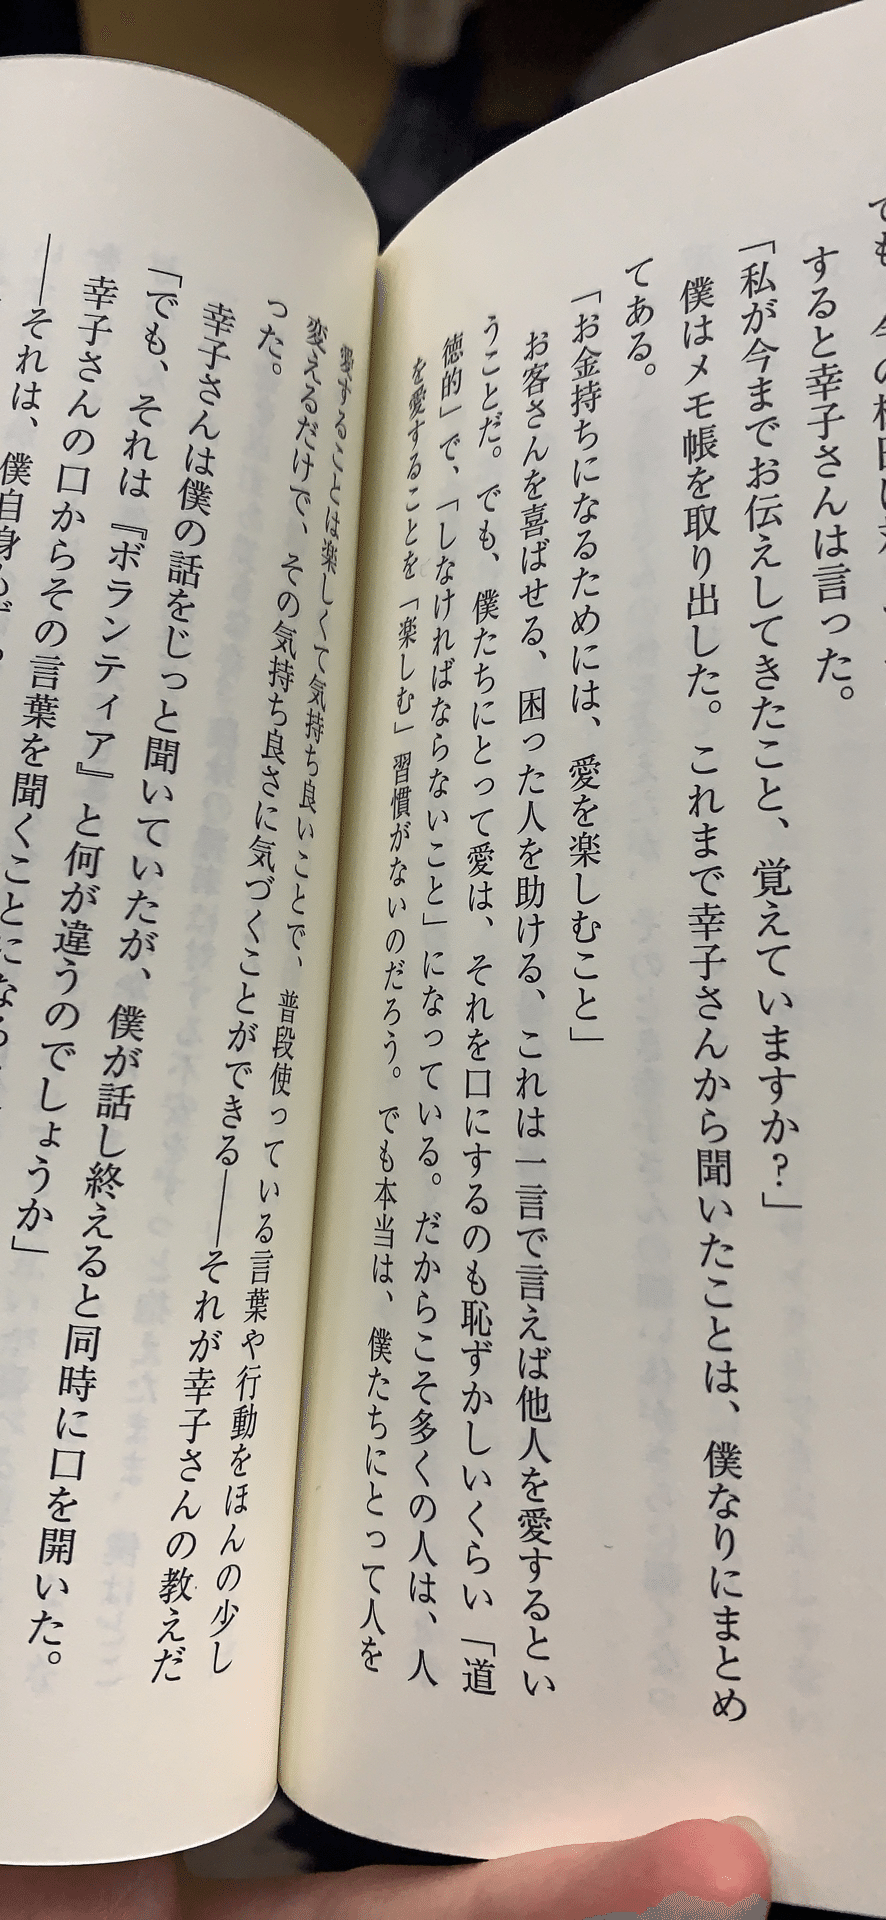 でも、今の
すると幸子さんは言った。
「私が今までお伝えしてきたこと、覚えていますか？」
僕はメモ帳を取り出した。これまで幸子さんから聞いたことは、僕なりにまとめ
てある。
「お金持ちになるためには、愛を楽しむこと」
お客さんを喜ばせる、困った人を助ける、これは一言で言えば他人を愛するとい
うことだ。でも、僕たちにとって愛は、それを口にするのも恥ずかしいくらい「道
徳的」で、「しなければならないこと」になっている。だからこそ多くの人は、人
を愛することを「楽しむ」習慣がないのだろう。でも本当は、僕たちにとって人を
愛することは楽しくて気持ち良いことで、普段使っている言葉や行動をほんの少し
変えるだけで、その気持ち良さに気づくことができる――それが幸子さんの教えだ
った。
幸子さんは僕の話をじっと聞いていたが、僕が話し終えると同時に口を開いた。
「でも、それは『ボランティア』と何が違うのでしょうか」
幸子さんの口からその言葉を聞くことになる
――それは、僕自身も